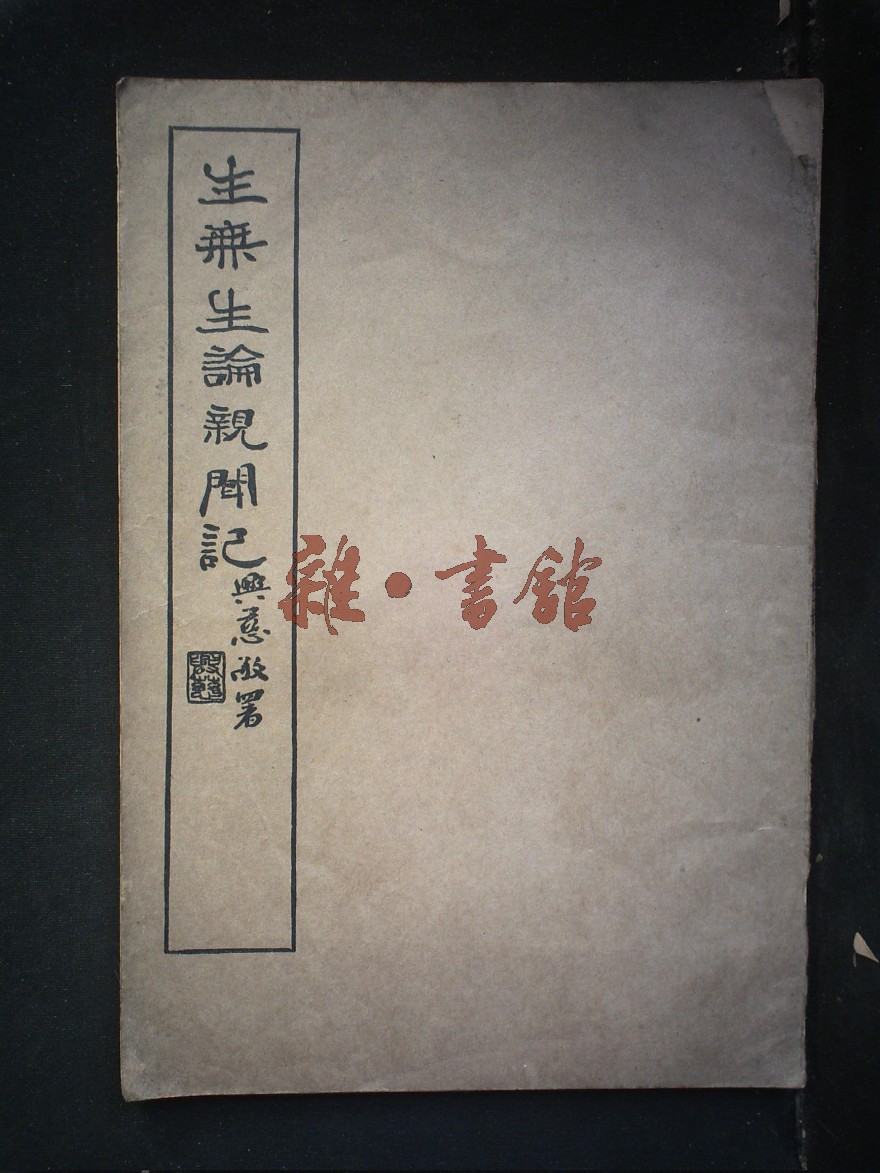 生無生論親聞記
興慈敬署
雜·書館